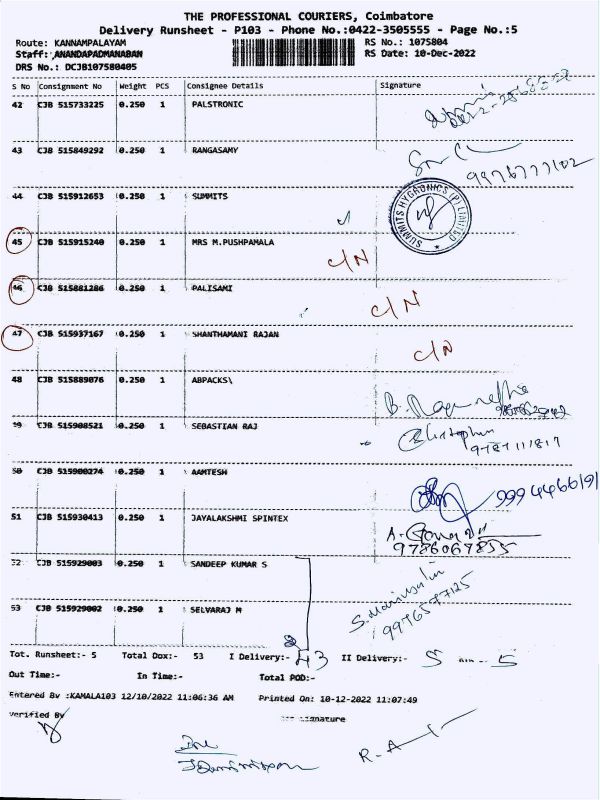 THE PROFESSIONAL COURIERS, Coimbatore
Delivery Runsheet - P103 - Phone No.:0422-3505555 - Page No.:5
Route: KANNAMPALAYAM RS No.: 1075804
Staff: ANANDAPADMANABAN RS Date: 10-Dec-2022
DRS No.: DCJB107580405
S No Consignment No Weight PCS Consignee Details Signature
42 CJB 515733225 0.250 1 PALSTRONIC
43 CJB 515849292 0.250 1 RANGASAMY
9976777102
44 CJB 515912653 0.250 1 SUMMITS
SUMMITS HYGRONICS (P) LIMITED
45 CJB 515915240 0.250 1 MRS M.PUSHPAMALA C/N
46 CJB 515881286 0.250 1 PALISAMI C/N
47 CJB 515937167 0.250 1 SHANTHAMANI RAJAN C/N
48 CJB 515889076 0.250 1 ABPACKS\
49 CJB 515908521 0.250 1 SEBASTIAN RAJ
9787111817
50 CJB 515900274 0.250 1 AAMTESH 9994466191
51 CJB 515930413 0.250 1 JAYALAKSHMI SPINTEX
9786067855
52 CJB 515929003 0.250 1 SANDEEP KUMAR S
53 CJB 515929002 0.250 1 SELVARAJ M
9976577125
Tot. Runsheet:- 5 Total Dox:- 53 I Delivery:- 43 II Delivery:- 5 5
Out Time:- In Time:- Total POD:-
Entered By :KAMALA103 12/10/2022 11:06:36 AM Printed On: 10-12-2022 11:07:49
Verified By Signature
R.A